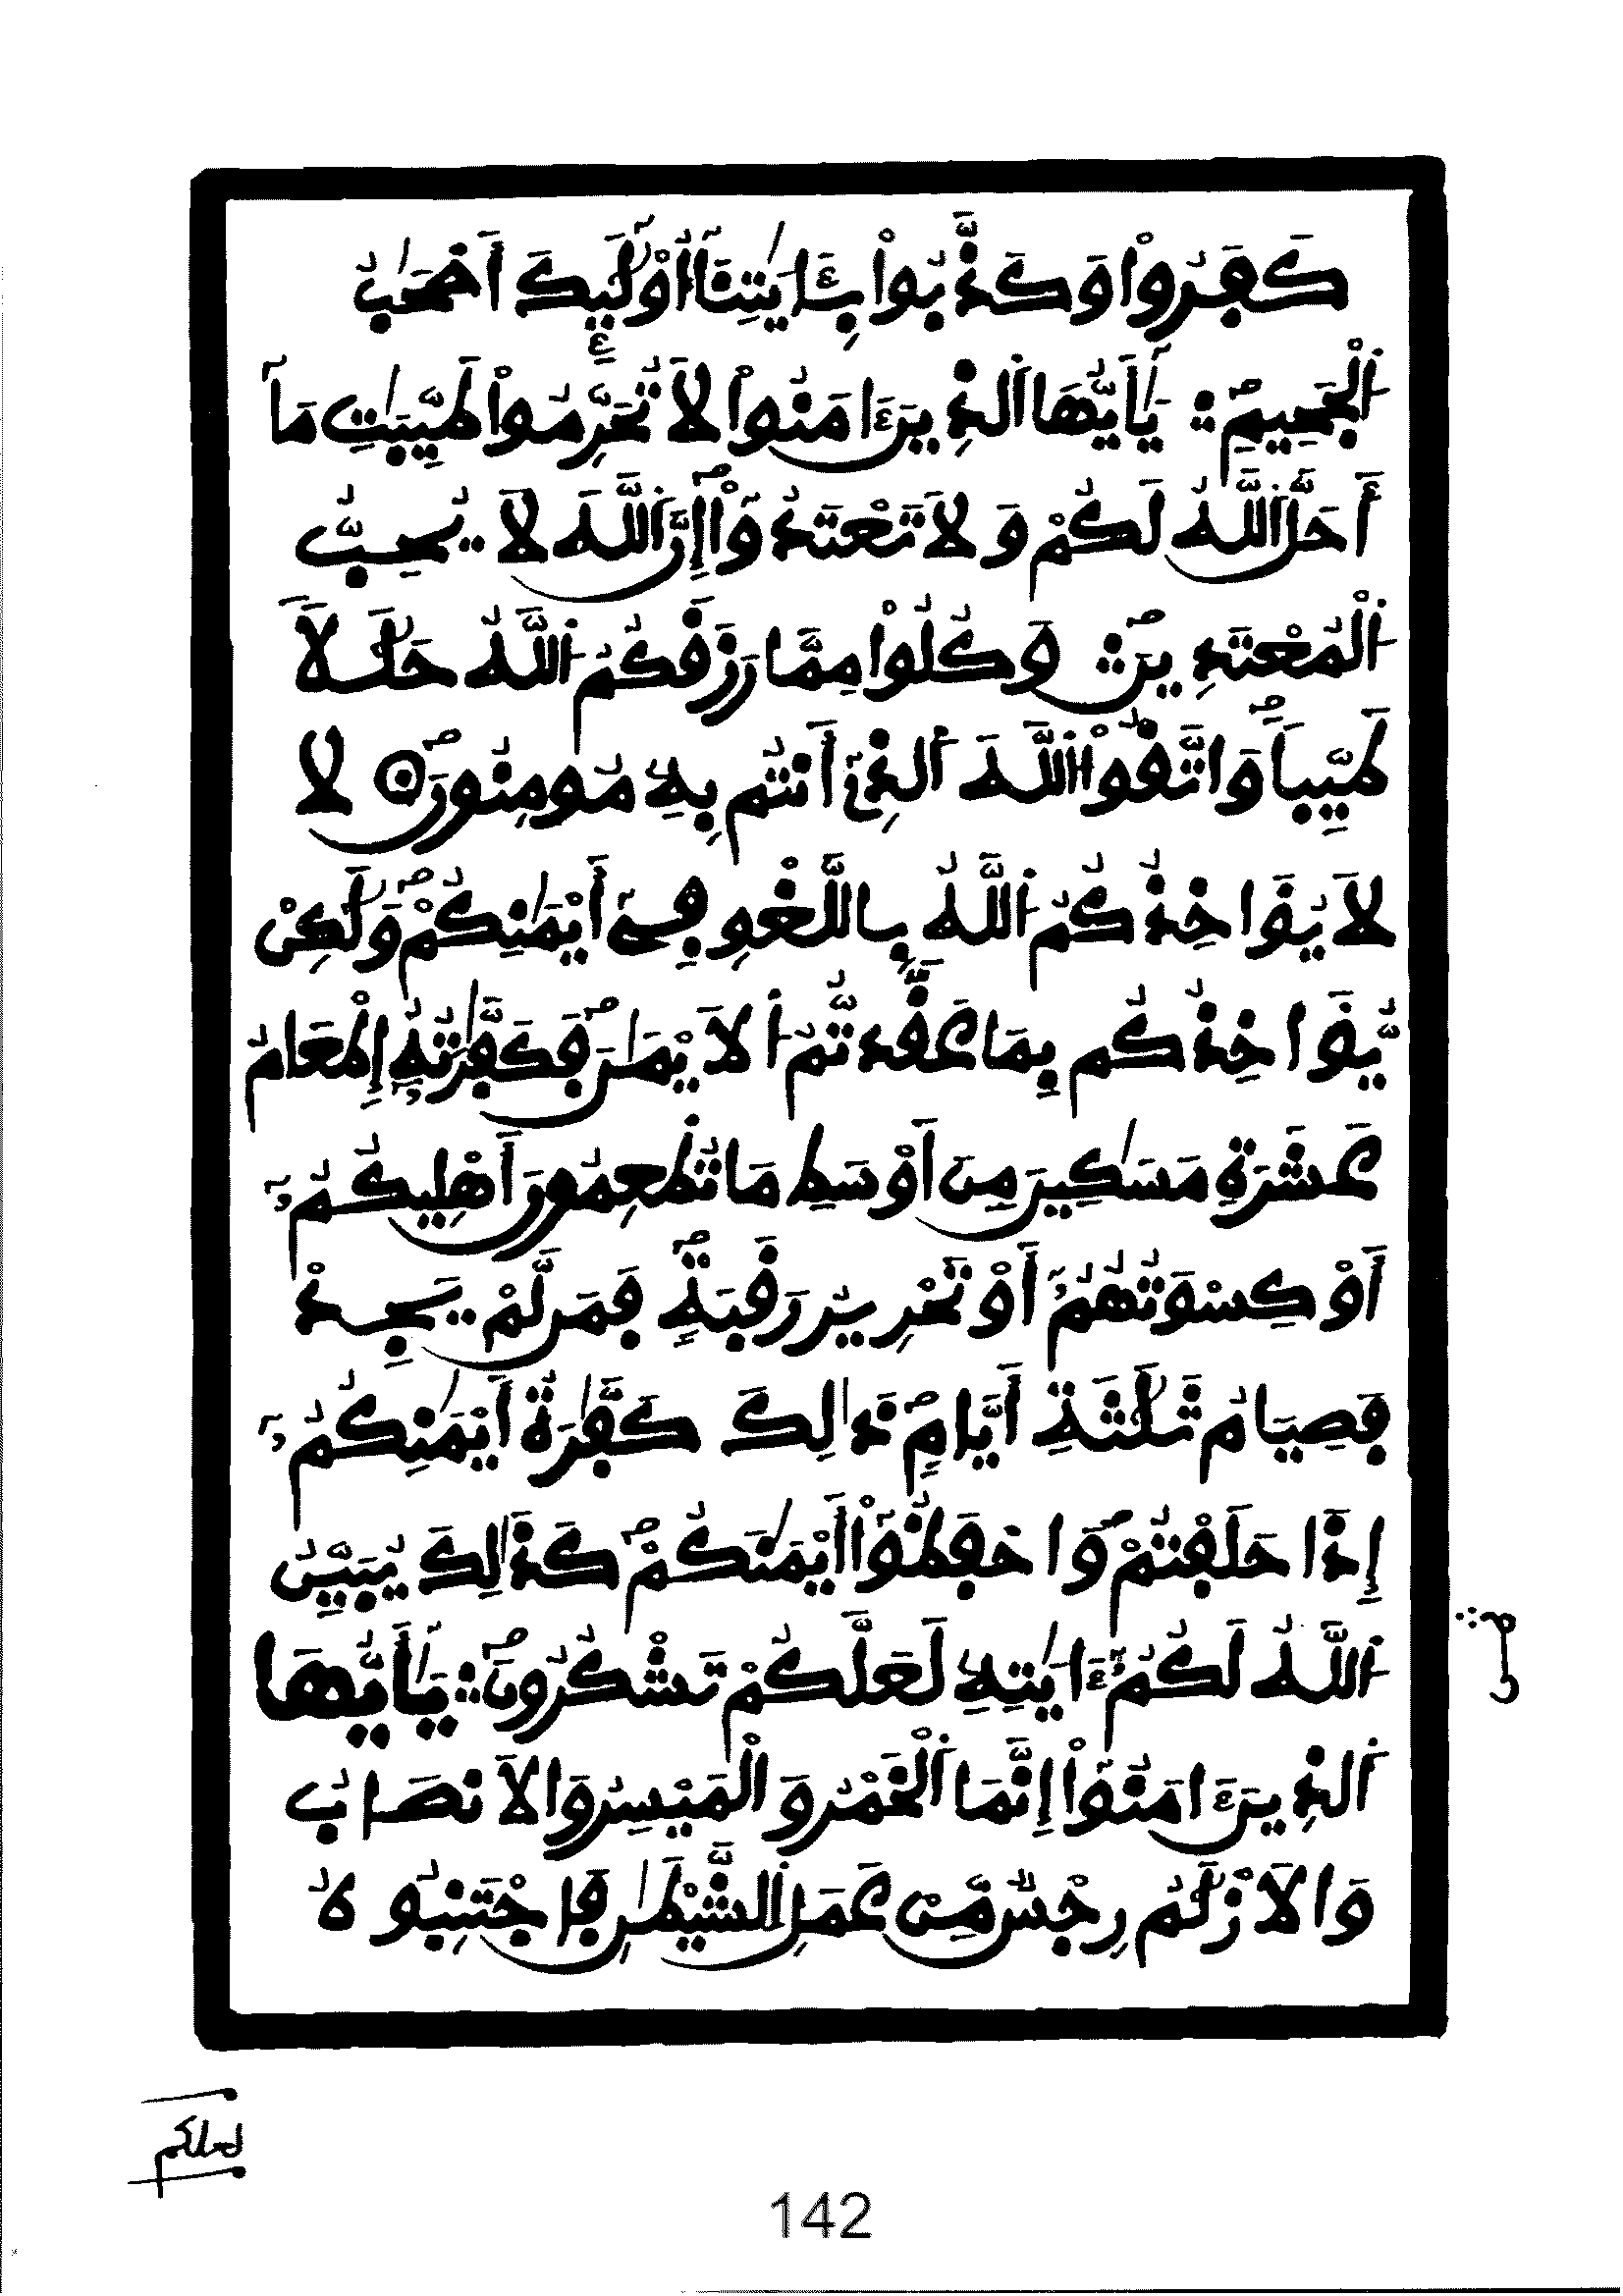 كَفَرُواْ وَكَذَّبُواْ بِـَٔايَٰتِنَآ أُوْلَٰٓئِكَ أَصْحَٰبُ
اُ۬لْجَحِيمِ يَٰٓأَيُّهَا اَ۬لذِينَ ءَامَنُواْ لَا تُحَرِّمُواْ طَيِّبَٰتِ مَآ
أَحَلَّ اَ۬للَّهُ لَكُمْ وَلَا تَعْتَدُوٓاْ إِنَّ اَ۬للَّهَ لَا يُحِبُّ
اُ۬لْمُعْتَدِينَ وَكُلُواْ مِمَّا رَزَقَكُمُ اُ۬للَّهُ حَلَٰلاً
طَيِّباً وَاتَّقُواْ اُ۬للَّهَ اَ۬لذِےٓ أَنتُم بِهِۦ مُومِنُونَ لَا
لَا يُوَاخِذُكُمُ اُ۬للَّهُ بِاللَّغْوِ فِےٓ أَيْمَٰنِكُمْ وَلَٰكِنْ
يُّوَاخِذُكُم بِمَا عَقَّدتُّمُ اُ۬لَايْمَٰنَ فَكَفَّٰرَتُهُۥٓ إِطْعَامُ
عَشَرَةِ مَسَٰكِينَ مِنَ اَوْسَطِ مَا تُطْعِمُونَ أَهْلِيكُمُۥٓ
أَوْ كِسْوَتُهُمُۥٓ أَوْ تَحْرِيرُ رَقَبَةٍ فَمَن لَّمْ يَجِدْ
فَصِيَامُ ثَلَٰثَةِ أَيَّامٍ ذَٰلِكَ كَفَّٰرَةُ أَيْمَٰنِكُمُۥٓ
إِذَا حَلَفْتُمْ وَاحْفَظُوٓاْ أَيْمَٰنَكُمْ كَذَٰلِكَ يُبَيِّنُ
اُ۬للَّهُ لَكُمُۥٓ ءَايَٰتِهِۦ لَعَلَّكُمْ تَشْكُرُونَ يَٰٓأَيُّهَا
اَ۬لذِينَ ءَامَنُوٓاْ إِنَّمَا اَ۬لْخَمْرُ وَالْمَيْسِرُ وَالَانصَابُ
وَالَازْلَٰمُ رِجْسٌ مِّنْ عَمَلِ اِ۬لشَّيْطَٰنِ فَاجْتَنِبُوهُ
لعلكم
142